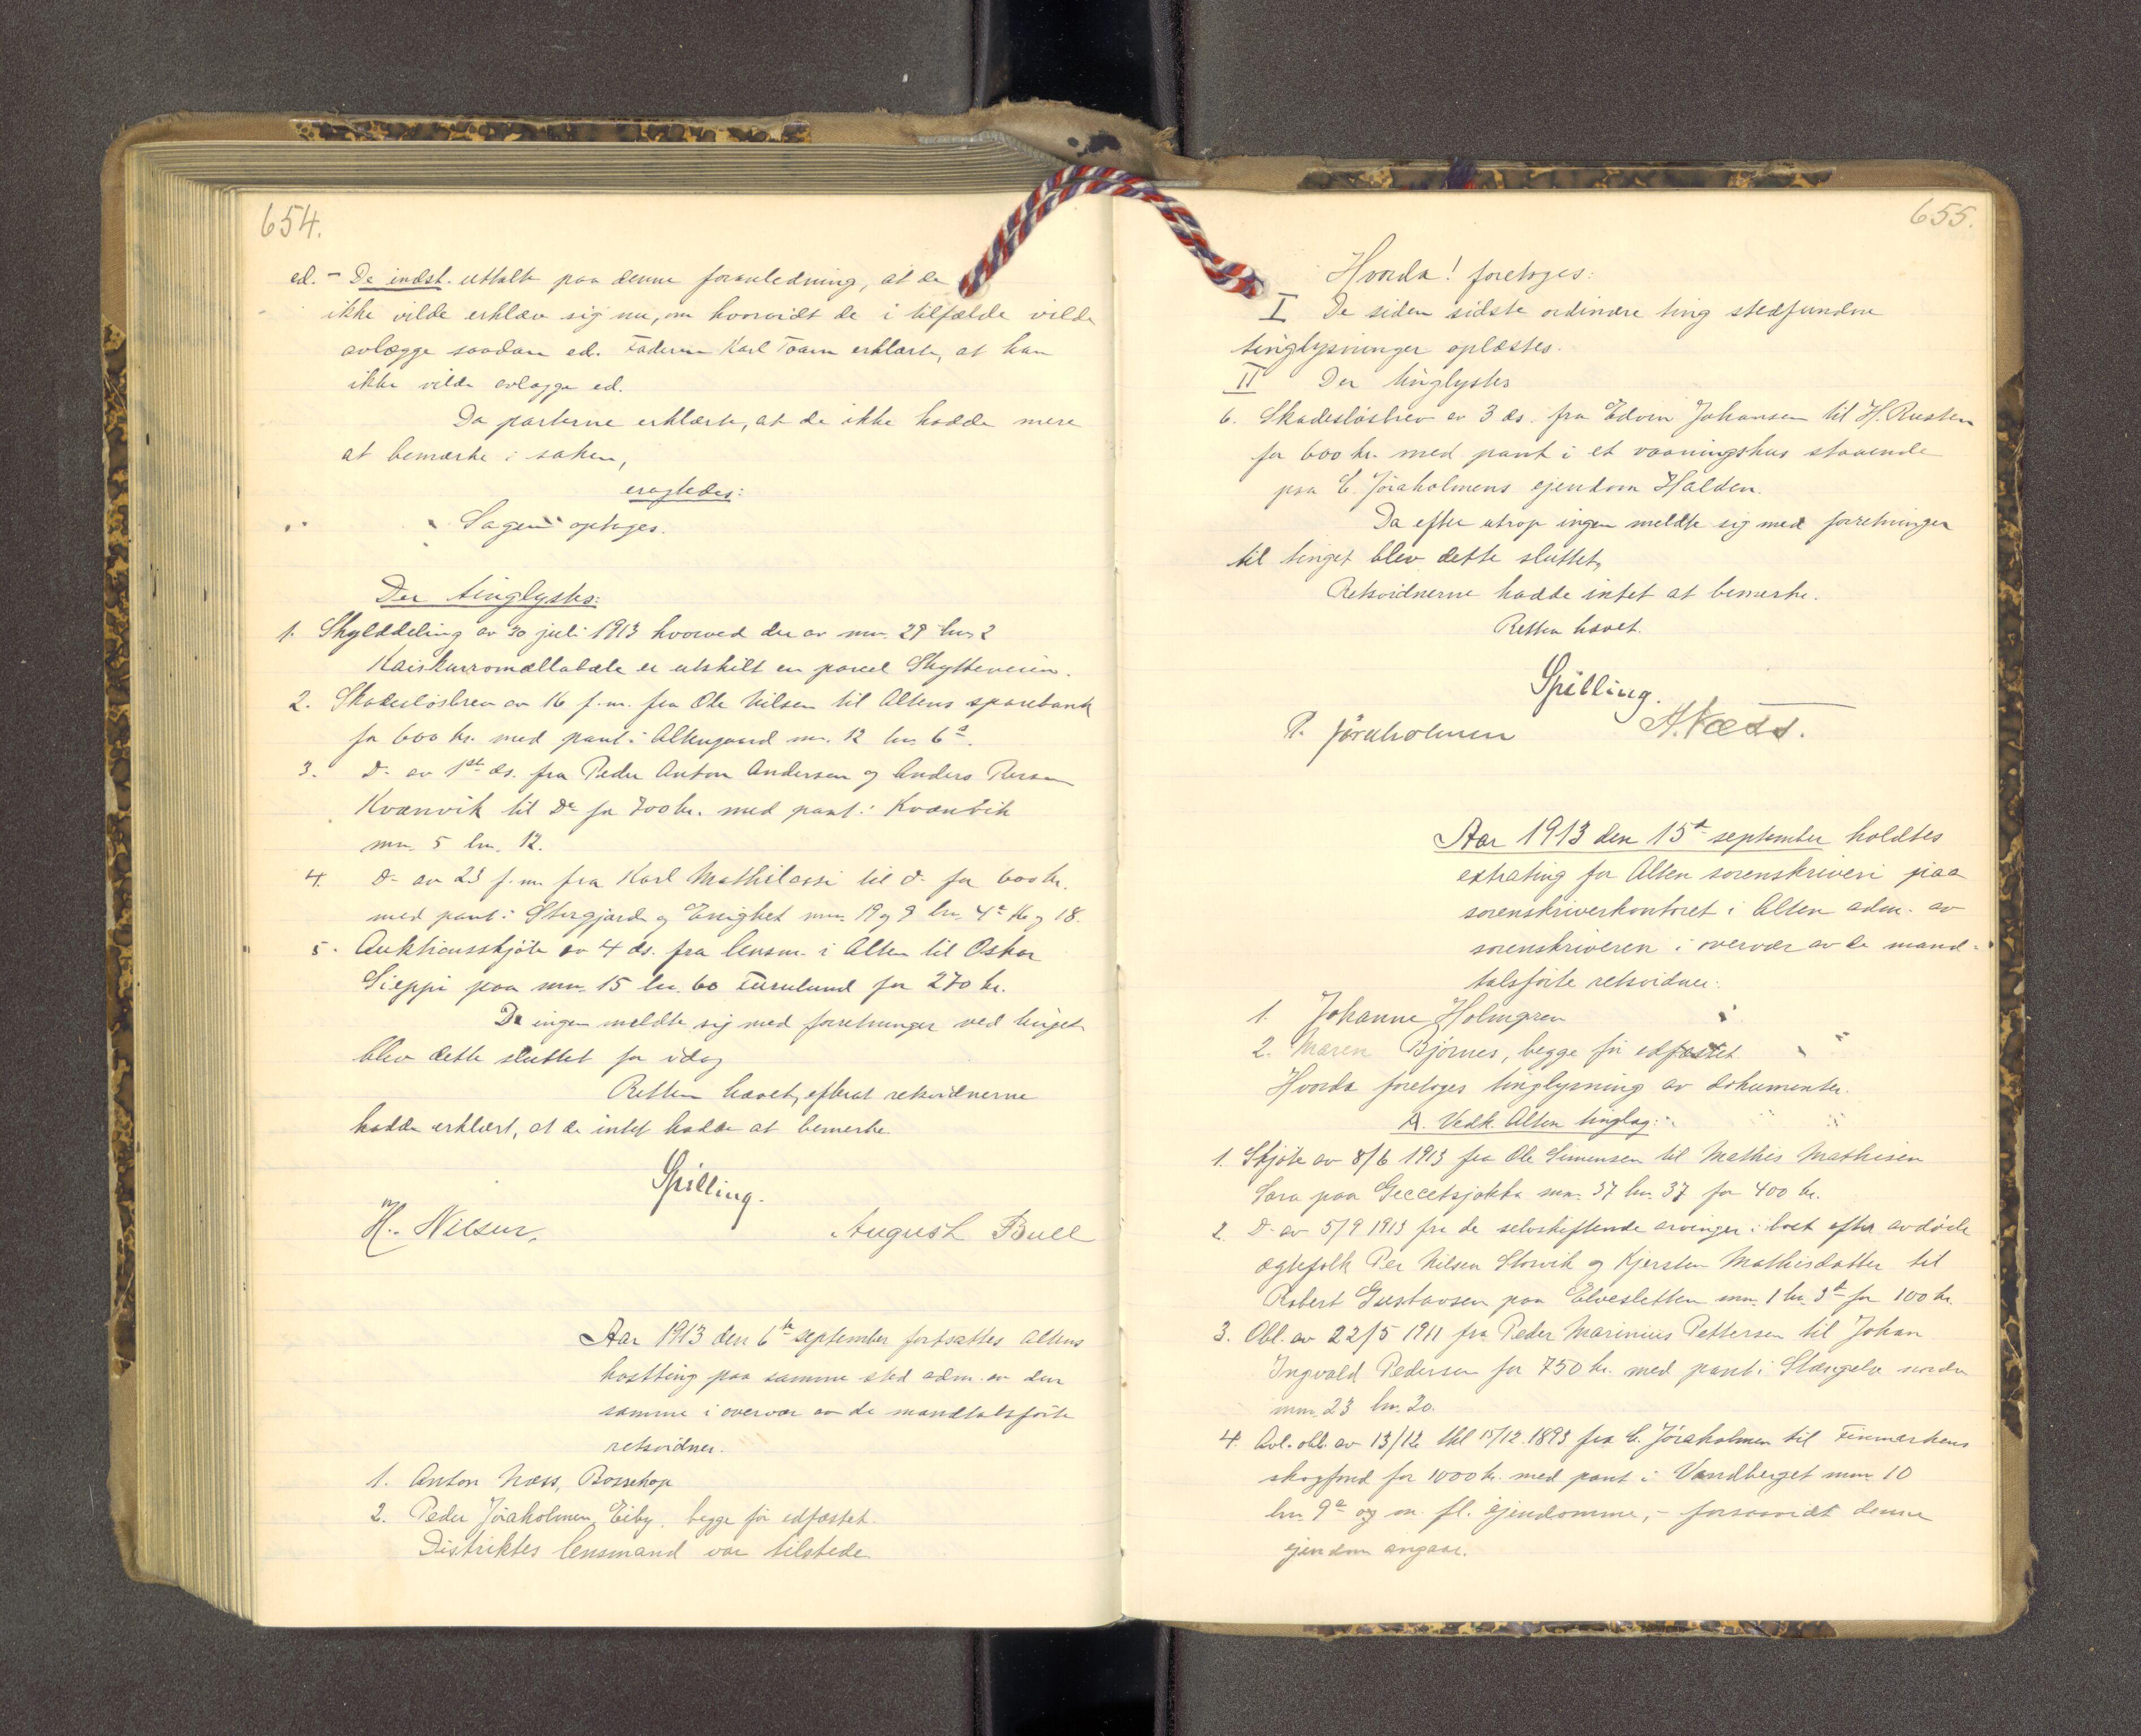 654.
ed. - De indst. uttalte paa denne foranledning, at de
ikke vilde erklære sig nu, om hvorvidt de i tilfælde vilde
avlægge saadan ed. Faderen Karl erklærte, at han
ikke vilde avlægge ed.
Da parterne erklærte, at de ikke hadde mere
at bemærke i saken,
eragtedes:
Sagen optages.
Der tinglystes:
1. Skylddeling av 30 juli 1913 hvorved der av mn. 29 bn. 2
er utskilt en parcel Skytterveien.
2. Skadesløsbrev av 16 f.m. fra Ole Nilsen til Altens sparebank
for 600 kr. med pant i Altengaard mn. 12 bn. 6
3. Do av 1ste ds. fra Peder Anton Andersen og Anders
Kvænvik til Do for 700 kr. med pant i Kvænvik
mn. 5 bn. 12.
4. Do av 23 f.m. fra Karl Mathilassi til Do for 600 kr.
med pant i Storgjorde og Enighet mn. 19 og 9 bn. 4a og 18.
5. Auktionsskjøte av 4 ds. fra lensm. i Alten til Oskar
Sieppi paa mn. 15 bn. 60 Furulund for 270 kr.
Da ingen meldte sig med forretninger ved tinget
blev dette sluttet for idag
Retten hævet, efterat retsvidnerne
hadde erklært, at de intet hadde at bemerke.
Spilling.
H. Nilsen.
August Bull
Aar 1913 den 6te september fortsattes altens
høstting paa samme sted adm. av den
samme i overvær av de mandtalsførte
retsvidner.
1. Anton Næss, Bossekop
2. Peder Jøraholmen, Eiby, begge før edfæstet.
Distriktets lensmand var tilstede
655.
Hvorda! foretoges:
I De siden sidste ordinære ting stedfundne
tinglysninger oplæstes.
II Der tinglystes
6. Skadesløsbrev av 3 ds. fra Edvin Johansen til H. Rusten
for 600 kr. med pant i et vaaningshus staaende
paa E. Jøraholmens ejendom Halden.
Da efter utrop ingen meldte sig med forretninger
til tinget blev dette sluttet.
Retsvidnerne hadde intet at bemerke.
Retten hævet.
Spilling.
P. Jöraholmen
A. Næss.
Aar 1913 den 15de september holdtes
extrating for Alten sorenskriveri paa
sorenskriverkontoret i Alten adm. av
sorenskriveren i overvær av de mand-
talsførte retsvidner:
1. Johanne Holmgren
2. Maren Bjørnes, begge før edfæstet
Hvorda foretoges tinglysning av dokumenter.
A. Vedk. Alten tinglag:
1. Skjøte av 8/6 1913 fra Ole Simensen til Mathis Mathisen
Sara paa mn. 37 bn. 37 for 400 kr.
2. Do av 5/9 1913 fra de selvskiftende arvinger i boet efter avdøde
ægtefolk Per Nilsen Storvik og Kjersten Mathisdatter til
Robert Gustavsen paa Elvesletten mn. 1 bn. 3 for 100 kr.
3. Obl. av 22/5 1911 fra Peder Marinius Pettersen til Johan
Ingvald Pedersen for 750 kr. med pant i Stængelv nordre
mn. 23 bn. 20.
4. Avl. obl. av 13/12 tgl 15/12 1893 fra E. Jøraholmen til Finmarkens
skogfond for 1000 kr. med pant i Vandberget mn. 10
bn. 9a og m. fl. ejendomme, - forsaavidt denne
ejendom angaar.